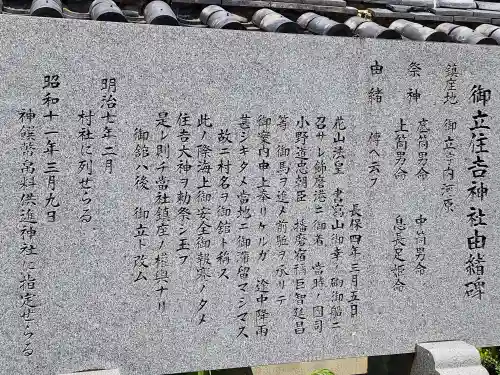 御立住吉神社由緒碑
鎮座地 御立字内河原
祭神 底筒男命 中筒男命
上筒男命 息長足姫命
由緒 傳ヘ云フ
長保四年三月五日
花山法皇 書寫山御幸ノ砌御船ニ
召サレ飾磨港ニ御着 當時ノ國司
小野道忠朝臣 播磨宿禰臣智延昌
等 御馬ヲ進メ前駈ヲ承リテ
御案内申上奉リケルガ 途中降雨
甚シキタメ當地ニ御蒲留マシマス
故ニ村名ヲ御館ト稱ス
此ノ際海上御安全御報賽ノタメ
住吉大神ヲ勅祭シ玉フ
是レ則チ當社鎮座ノ根縁ナリ
御館ハ後 御立ト改ム
明治七年二月
村社に列せらる
昭和十一年三月九日
神饌幣帛料供進神社に指定せらる